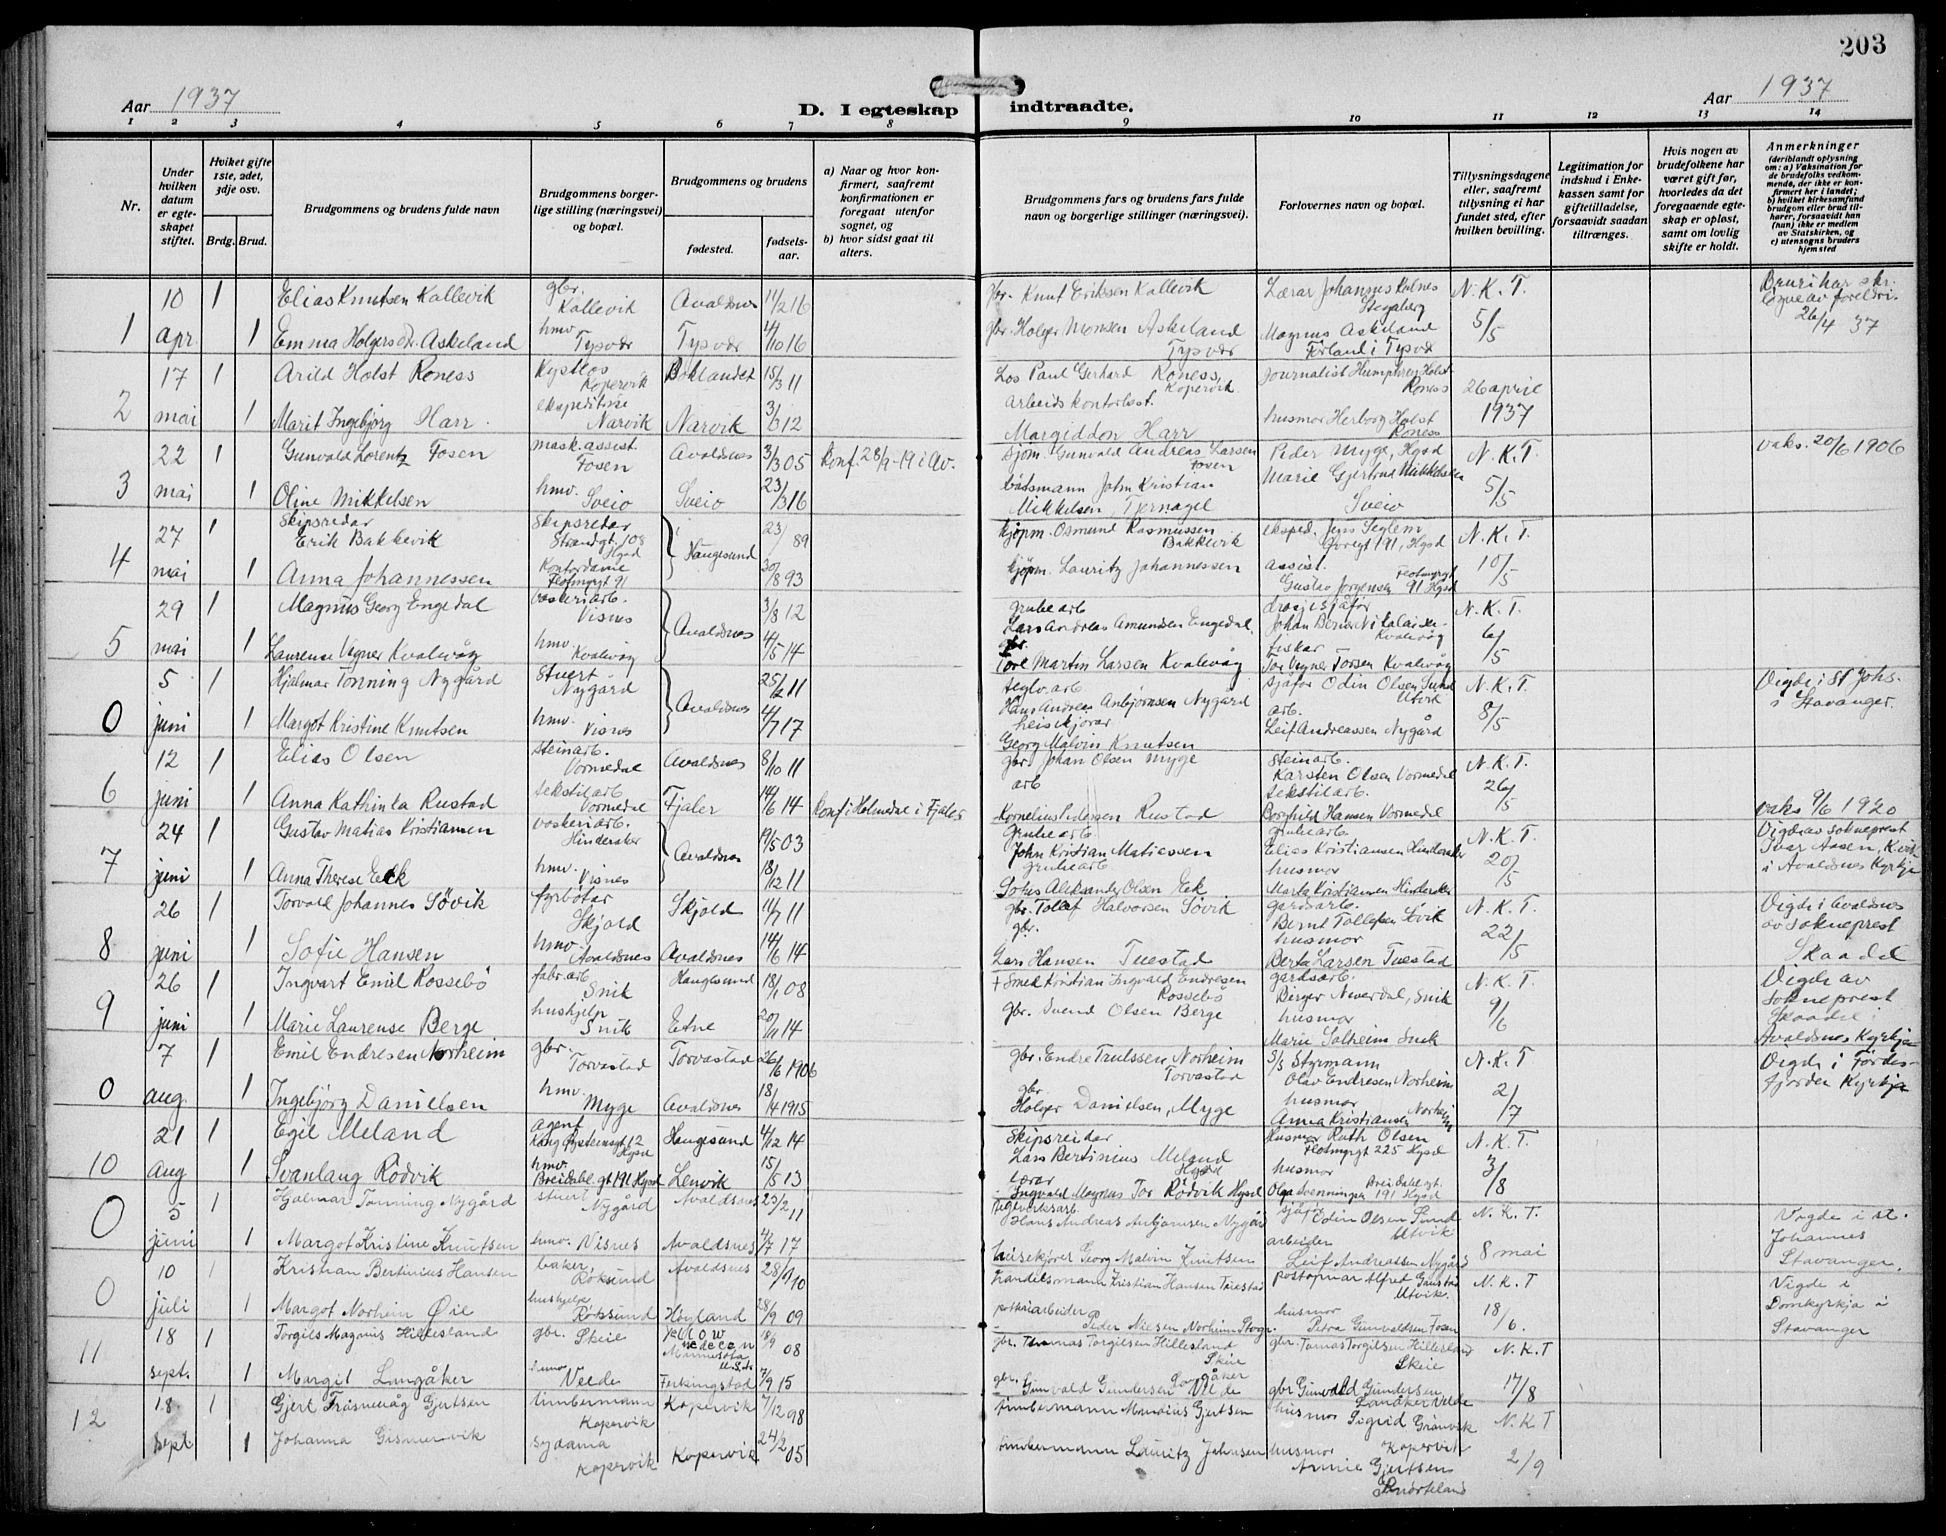 203
Aar 1937
D. I egteskap indtraadte.
Aar 1937
1 2 3 4 5 6 7 8 9 10 11 12 13 14
Nr.
Under hvilken datum er egteskapet stiftet.
Hviket gifte 1ste, 2det, 3dje osv.
Brdg. Brud.
Brudgommens og brudens fulde navn
Brudgommens borgerlige stilling (næringsvei) og bopæl.
Brudgommens og brudens
fødested.
fødselsaar.
a) Naar og hvor konfirmert, saafremt konfirmationen er foregaat utenfor sognet, og
b) hvor sidst gaat til alters.
Brudgommens fars og brudens fars fulde navn og borgerlige stillinger (næringsvei).
Forlovernes navn og bopæl.
Tillysningsdagene eller, saafremt tillysning ei har fundet sted, efter hvilken bevilling.
Legitimation for indskud i Enkekassen samt for giftetilladelse, forsaavidt saadan tiltrænges.
Hvis nogen av brudefolkene har været gift før, hvorledes da det foregaaende egteskap er opløst, samt om lovlig skifte er holdt.
Anmerkninger
(deriblandt oplysning om: a) Vaksination for de brudefolks vedkommende, der ikke er konfirmert her i landet; b) hvilket kirkesamfund brudgom eller brud tilhører, forsaavidt han (hun) ikke er medlem av Statskirken, og c) utensogns bruders hjemsted
10 1 Elias Knutsen Kallevik gbr. Kallevik Avaldsnes 11/2 16 gbr. Knut Eriksen Kallevik Lærar Johannes Kolnes Stegaberg N. K. T. Bruri har skr. løyve av foreldri 26/4 37
1 apr. 1 Emma Holgersdr. Askeland hmv. Tysvær Tysvær 4/10 16 gbr. Holger Monsen Askeland Tysvær Magnus Askeland Førland i Tysvær 5/5
17 1 Arild Holst Roness Kystlos Kopervik Boklandet 15/3 11 Los Paul Gerhard Roness, Kopervik Journalist Humphrey Holst Roness 26 april
2 mai 1 Marit Ingebjørg Harr. ekspeditrise Narvik Narvik 3/6 12 Arbeidskontorbest. Margiddon Harr husmor Herborg Holst Roness 1937
22 1 Gunvald Lorentz Fosen mask. assist. Fosen Avaldsnes 3/3 05 Konf. 28/9-19 i Av. sjøm. Gunvald Andreas Larsen Fosen Peder Myge, Hgsd N. K. T. vaks. 20/6 1906
3 mai 1 Oline Mikkelsen hmv. Sveio Sveio 23/3 16 båtsmann John Kristian Mikkelsen, Tjernagel Marie Gjertrud Mikkelsen Sveio 5/5
27 1 Skipsredar Erik Bakkevik Skipsredar Strandgt. 108 Hgsd Haugesund 23/ 89 kjøpm. Osmund Rasmussen Bakkevik eksped. Jens Seglem, Øvregt 191, Hgsd N. K. T.
4 mai 1 Anna Johannessen Kontordame Flotmyrgt 91 30/8 93 kjøpm. Lauritz Johannessen assist. Gustav Jørgensen Flotmyrgt 91 Hgsd 10/5
29 1 Magnus Georg Engedal vaskeriarb. Visnes Avaldsnes 3/8 12 grubearb Lars Andreas Amundsen Engedal drosjesjåfør Johan N. K. T.
5 mai 1 Laurense Vagner Kvalevåg hmv. Kvalevåg 4/5 14 gbr. Tore Martin Larsen Kvalevåg fiskar Tor Vagner Torsen Kvalevåg 6/5
5 1 Hjalmar Tonning Nygård Stuert Nygård Avaldsnes 25/2 11 teglv. arb Hans Andreas Anbjørnsen Nygård sjåfør Odin Olsen Sund Utvik N. K. T. Vigde i St Johs. i Stavanger.
0 juni 1 Margot Kristine Knutsen hmv. Visnes 4/7 17 heiskjørar Georg Malvin Knutsen arb. Leif Andreassen Nygård 8/5
12 1 Elias Olsen steinarb. Vormedal Avaldsnes 8/10 11 gbr. Johan Olsen Myge steinarb. Karsten Olsen Vormedal N. K. T.
6 juni 1 Anna Kathinka Rustad tekstilarb Vormedal Fjaler 14/6 14 Konf. i Holmedal i Fjaler arb Kornelius Pedersen Rustad tekstilarb. Borghild Hansen Vormedal 26/5 vaks 9/6 1920
24 1 Gustav Matias Kristiansen vaskeriarb. Hinderaker Avaldsnes 19/5 03 Grubearb John Kristian Matiassen grubearb. Elias Kristiansen Hinderaker N. K. T. Vigde av sokneprest Ivar Aasen, Kvik i Avaldsnes Kyrkje
7 juni 1 Anna Therese Eek hmv. Visnes 18/12 11 grubearb Johs Aleksander Olsen Eek husmor Marta Kristiansen Hinderaker 20/5
26 1 Torvald Johannes Søvik fyrbøtar Skjold Skjold 11/7 11 gbr. Tollef Halvorsen Søvik gardsarb. Bernt Tollefsen Søvik N. K. T. Vigde i Avaldsnes av sokneprest Skaadel
8 juni 1 Sofie Hansen hmv. Avaldsnes Avaldsnes 14/6 14 gbr. Lars Hansen Tuestad husmor Berta Larsen Tuestad 22/5
26 1 Ingvart Emil Rossebø fabr. arb Snik Haugesund 18/1 08 + Smed Kristian Ingvald Endresen Rossebø gardsarb. Birger , Snik N. K. T. Vigde av sokneprest Skaadel i Avaldsnes Kyrkje
9 juni 1 Marie Laurense Berge hushjelp Snik Etne 20/11 14 gbr. Svend Olsen Berge husmor Marie Solheim Snik 9/6
7 1 Emil Endresen Norheim gbr. Torvastad Torvastad 26/6 1906 gbr. Endre Trulssen Norheim Torvastad S/S Styrmann Olav Endresen Norheim N. K. T Vigde i Førdesfjorden Kyrkje
0 aug. 1 Ingebjørg Danielsen hmv. Myge Avaldsnes 18/4 1915 gbr Holger Danielsen, Myge husmor Anna Kristiansen Norheim 2/7
21 1 Egil Meland Agent Kong Øysteinsgt 12 Hgsd Haugesund 4/12 14 Skipsreidar Lars Bertinius Meland Hgsd Husmor Ruth Olsen Flotmyrgt 225 Hgsd N. K. T.
10 aug 1 Svanlaug Rødvik hmv. Breidabl. gt 191 Hgsd Lenvik 15/5 13 lærar Ingvald Magnus Tor Rødvik Hgsd husmor Olga Svenningsen Breidabl.gt. 191 Hgsd 3/8
0 5 1 Hjalmar Tonning Nygård stuert Nygård Avaldsnes 23/2 11 Teglverksarb. Hans Andreas Anbjørnsen Nygård sjåfør Odin Olsen Sund Utvik N. K. T. Vigde i st. Johannes Stavanger.
juni 1 Margot Kristine Knutsen hmv. Visnes Avaldsnes 4/7 17 heisekjører Georg Malvin Knutsen arbeider Leif Andreassen Nygård 8 mai
10 1 Kristian Bertinius Hansen baker, Røksund Avaldsnes 28/1 10 handelsmann Kristian Hansen Tuestad postopnar Alfred Gaustad Utvik. N. K. T Vigde i Domkyrkja i Stavanger
0 juli 1 Margot Norheim Øie hushjelp Røksund Høyland 28/9 09 Peder Nielsen Norheim husmor Petra Gunvaldsen Fosen 18/6.
18 1 Torgils Magnus Hillesland gbr. Skeie Yellow Minnesota U.S.A. 18/9 08 gbr. Thomas Torgilsen Hillesland Skeie gbr. Tomas Torgilsen Hillesland Skeie N. K. T
11 sept. 1 Margit Langåker hmv Velde Ferkingstad 7/9 15 gbr. Gunvald Gundersen Langåker Velde gbr Gunvald Gundersen Langåker Velde 17/8
18 1 Gjert Gjertsen timbermann Kopervik Kopervik 7/12 98 timbermann Mandius Gjertsen husmor Sigrid Grønvik Kopervik N. K T
12 sept 1 Johanna Gismervik sydama Kopervik Kopervik 24/2 05 timbermann Lauritz Johnsen husmor Annie Gjertsen 2/9